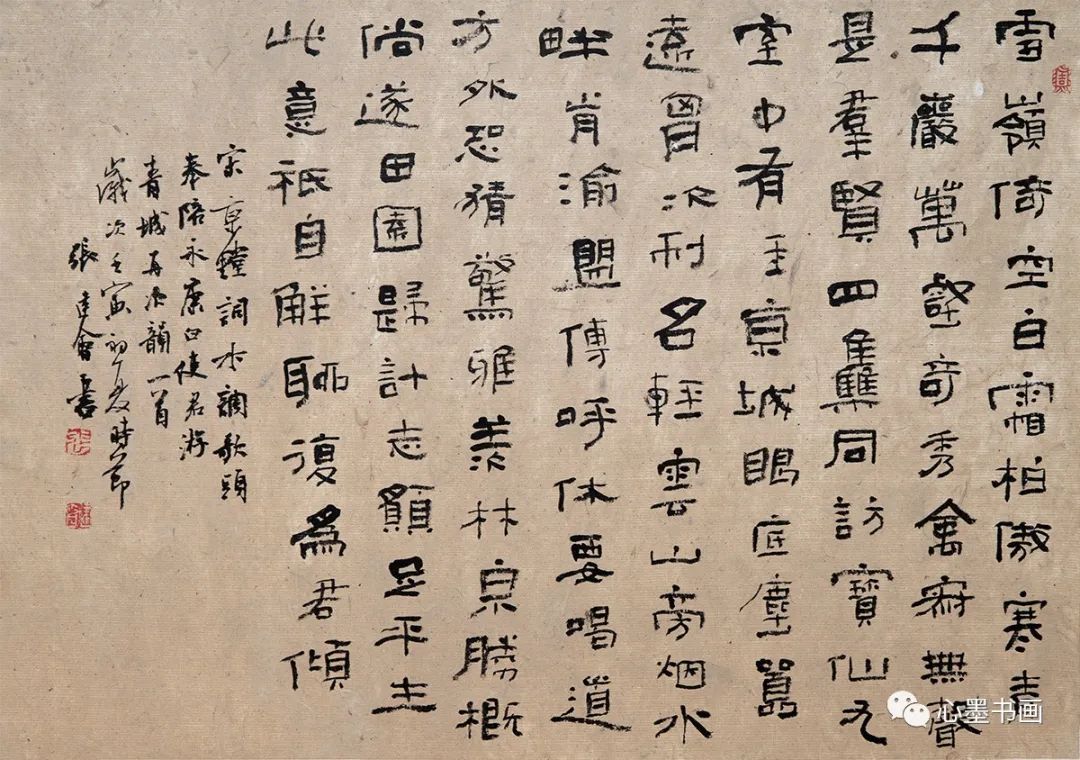 雪嶺倚空白霜柏傲寒青
千巖萬壑奇秀禽寂無聲
是羣賢四雧同訪寶仙九
室中有玉京城眼底塵囂
遠胷次利名輕雲山旁烟水
畔肯渝盟傳呼休要喝道
方外恐猜驚雅羨林泉勝概
倘遂田園歸計志願足平生
此意祇自解聊復為君傾
宋京鏜詞水調歌頭
奉陪永康白使君游
青城再次韻一首
歲次壬寅初夏時節
張建會書
心墨书画